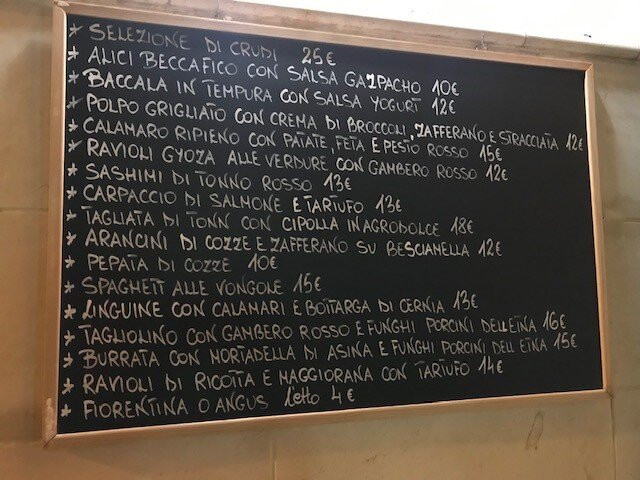 * SELEZIONE DI CRUDI 25€
* ALICI BECCAFICO CON SALSA GAZPACHO 10€
* BACCALA IN TEMPURA CON SALSA YOGURT 12€
* POLPO GRIGLIATO CON CREMA DI BROCCOLI, ZAFFERANO E STRACCIATA 12€
* CALAMARO RIPIENO CON PATATE, FETA E PESTO ROSSO 15€
* RAVIOLI GYOZA ALLE VERDURE CON GAMBERO ROSSO 12€
* SASHIMI DI TONNO ROSSO 13€
* CARPACCIO DI SALMONE E TARTUFO 13€
* TAGLIATA DI TONN CON CIPOLLA IN AGRODOLCE 18€
* ARANCINI DI COZZE E ZAFFERANO SU BESCIAMELLA 12€
* PEPATA DI COZZE 10€
* SPAGHETT ALLE VONGOLE 15€
* LINGUINE CON CALAMARI E BOTTARGA DI CERNIA 13€
* TAGLIOLINO CON GAMBERO ROSSO E FUNGHI PORCINI DELL ETNA 16€
* BURRATA CON MORTADELLA DI ASINA E FUNGHI PORCINI DELL ETNA 15€
* RAVIOLI DI RICOTTA E MAGGIORANA CON TARTUFO 14€
* FIORENTINA O ANGUS l'etto 4€